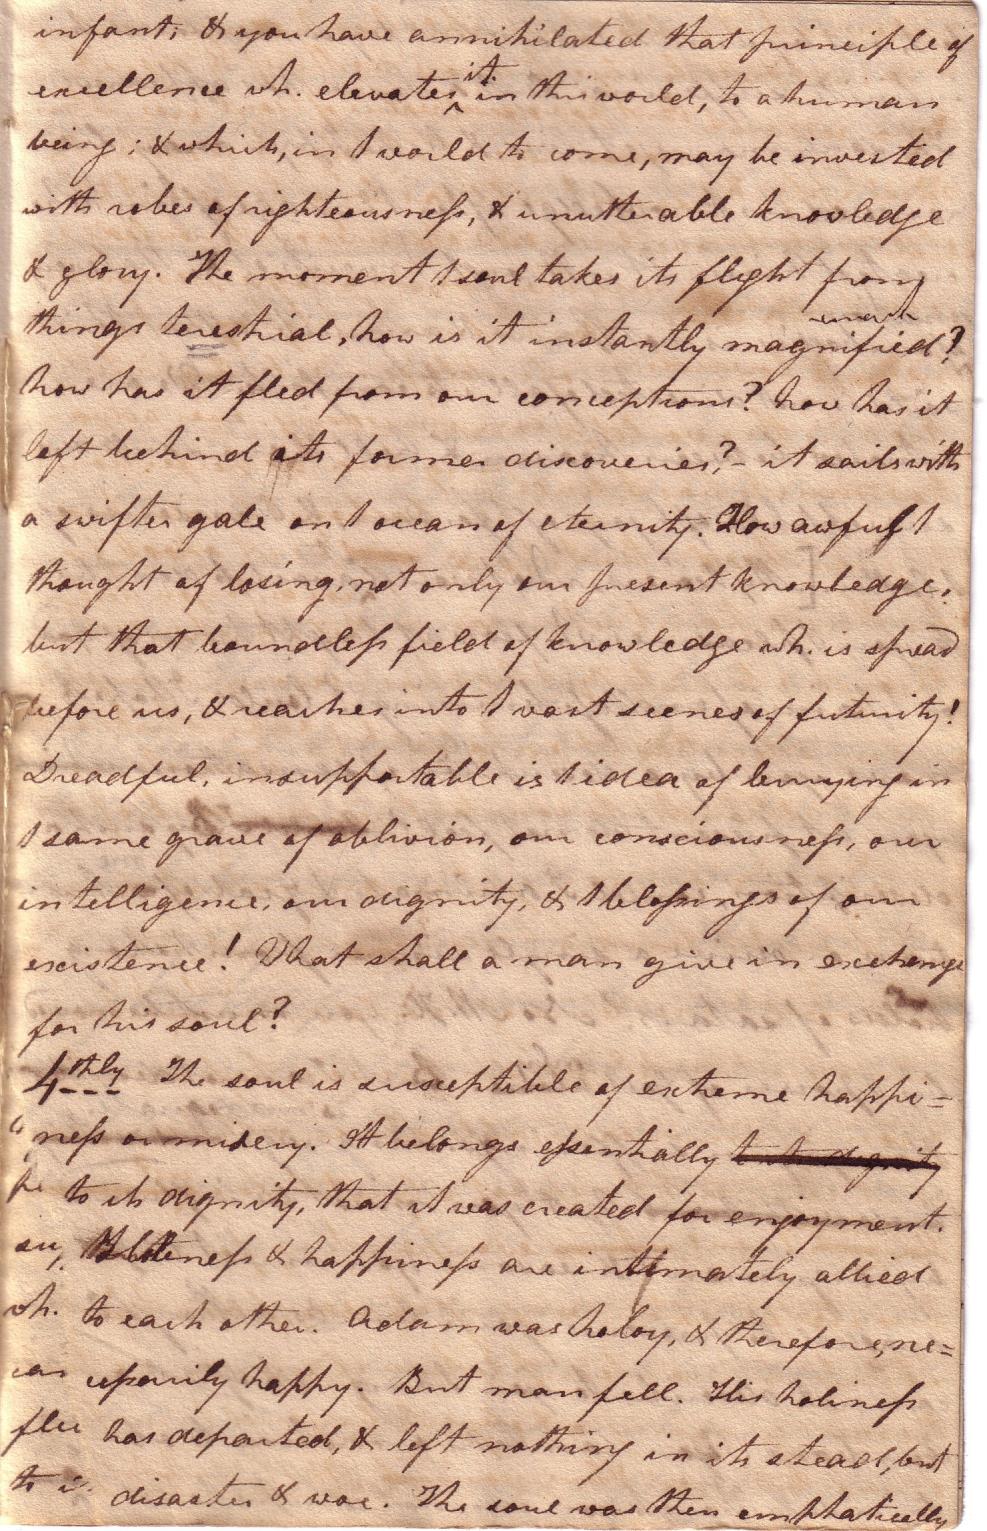 infant; & you have annihilated that principle of
excellence wh. elevates it in this world, to a human
being; & which, in I world to come, may be invested
with robes of righteousness, & unutterable knowledge
& glory. The moment I soul takes its flight from
things terestrial, how is it instantly magnified?
how has it fled from our conceptions? how has it
left behind its former discoveries? - it sails with
a swifter gale on I ocean of eternity. How awful I
thought of losing, not only our present knowledge,
but that boundless field of knowledge wh. is spread
before us, & reaches into I vast scenes of futurity!
Dreadful, insupportable is I idea of burying in
I same grave of oblivion, our consciousness, our
intelligence, our dignity, & I blessings of our
existence! What shall a man give in exchange
for his soul?
4thly The soul is susceptible of extreme happi=
ness or misery. It belongs essentially to its dignity
to its dignity, that it was created for enjoyment.
& happiness are intimately allied
wh. to each other. Adam was holoy, & therefore, ne=
cessarily happy. But man fell. His holiness
has departed, & left nothing in its stead, but
disaster & woe. The soul was then emphatically